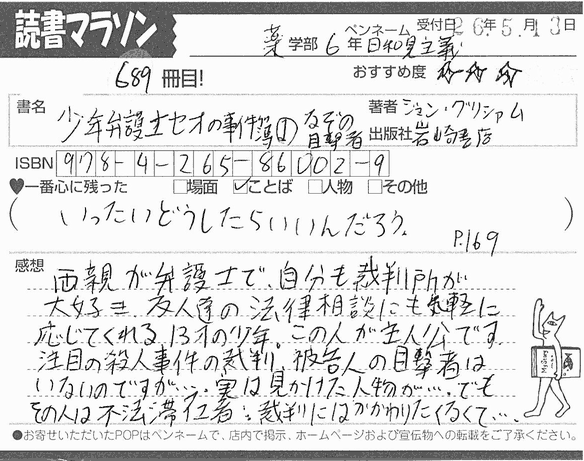 読書マラソン
受付日 26年 5月 13日
薬 学部 6年 ペンネーム 日和見主義
689 冊目!
おすすめ度 ☆☆☆
書名 少年弁護士セオの事件簿① なぞの目撃者
著者 ジョン・グリシャム
出版社 岩崎書店
ISBN 978-4-265-86002-9
♥一番心に残った □場面 ☑ことば □人物 □その他
(いったいどうしたらいいんだろう。 P.169)
感想
両親が弁護士で、自分も裁判所が
大好き。友人達の法律相談にも気軽に
応じてくれる13才の少年。この人が主人公です。
注目の殺人事件の裁判、被告人の目撃者は
いないのですが…。実は見かけた人物が…。でも
その人は不法滞在者：裁判にはかかわりたくなくて…
●お寄せいただいたPOPはペンネームで、店内で掲示、ホームページおよび宣伝物への転載をご了承ください。